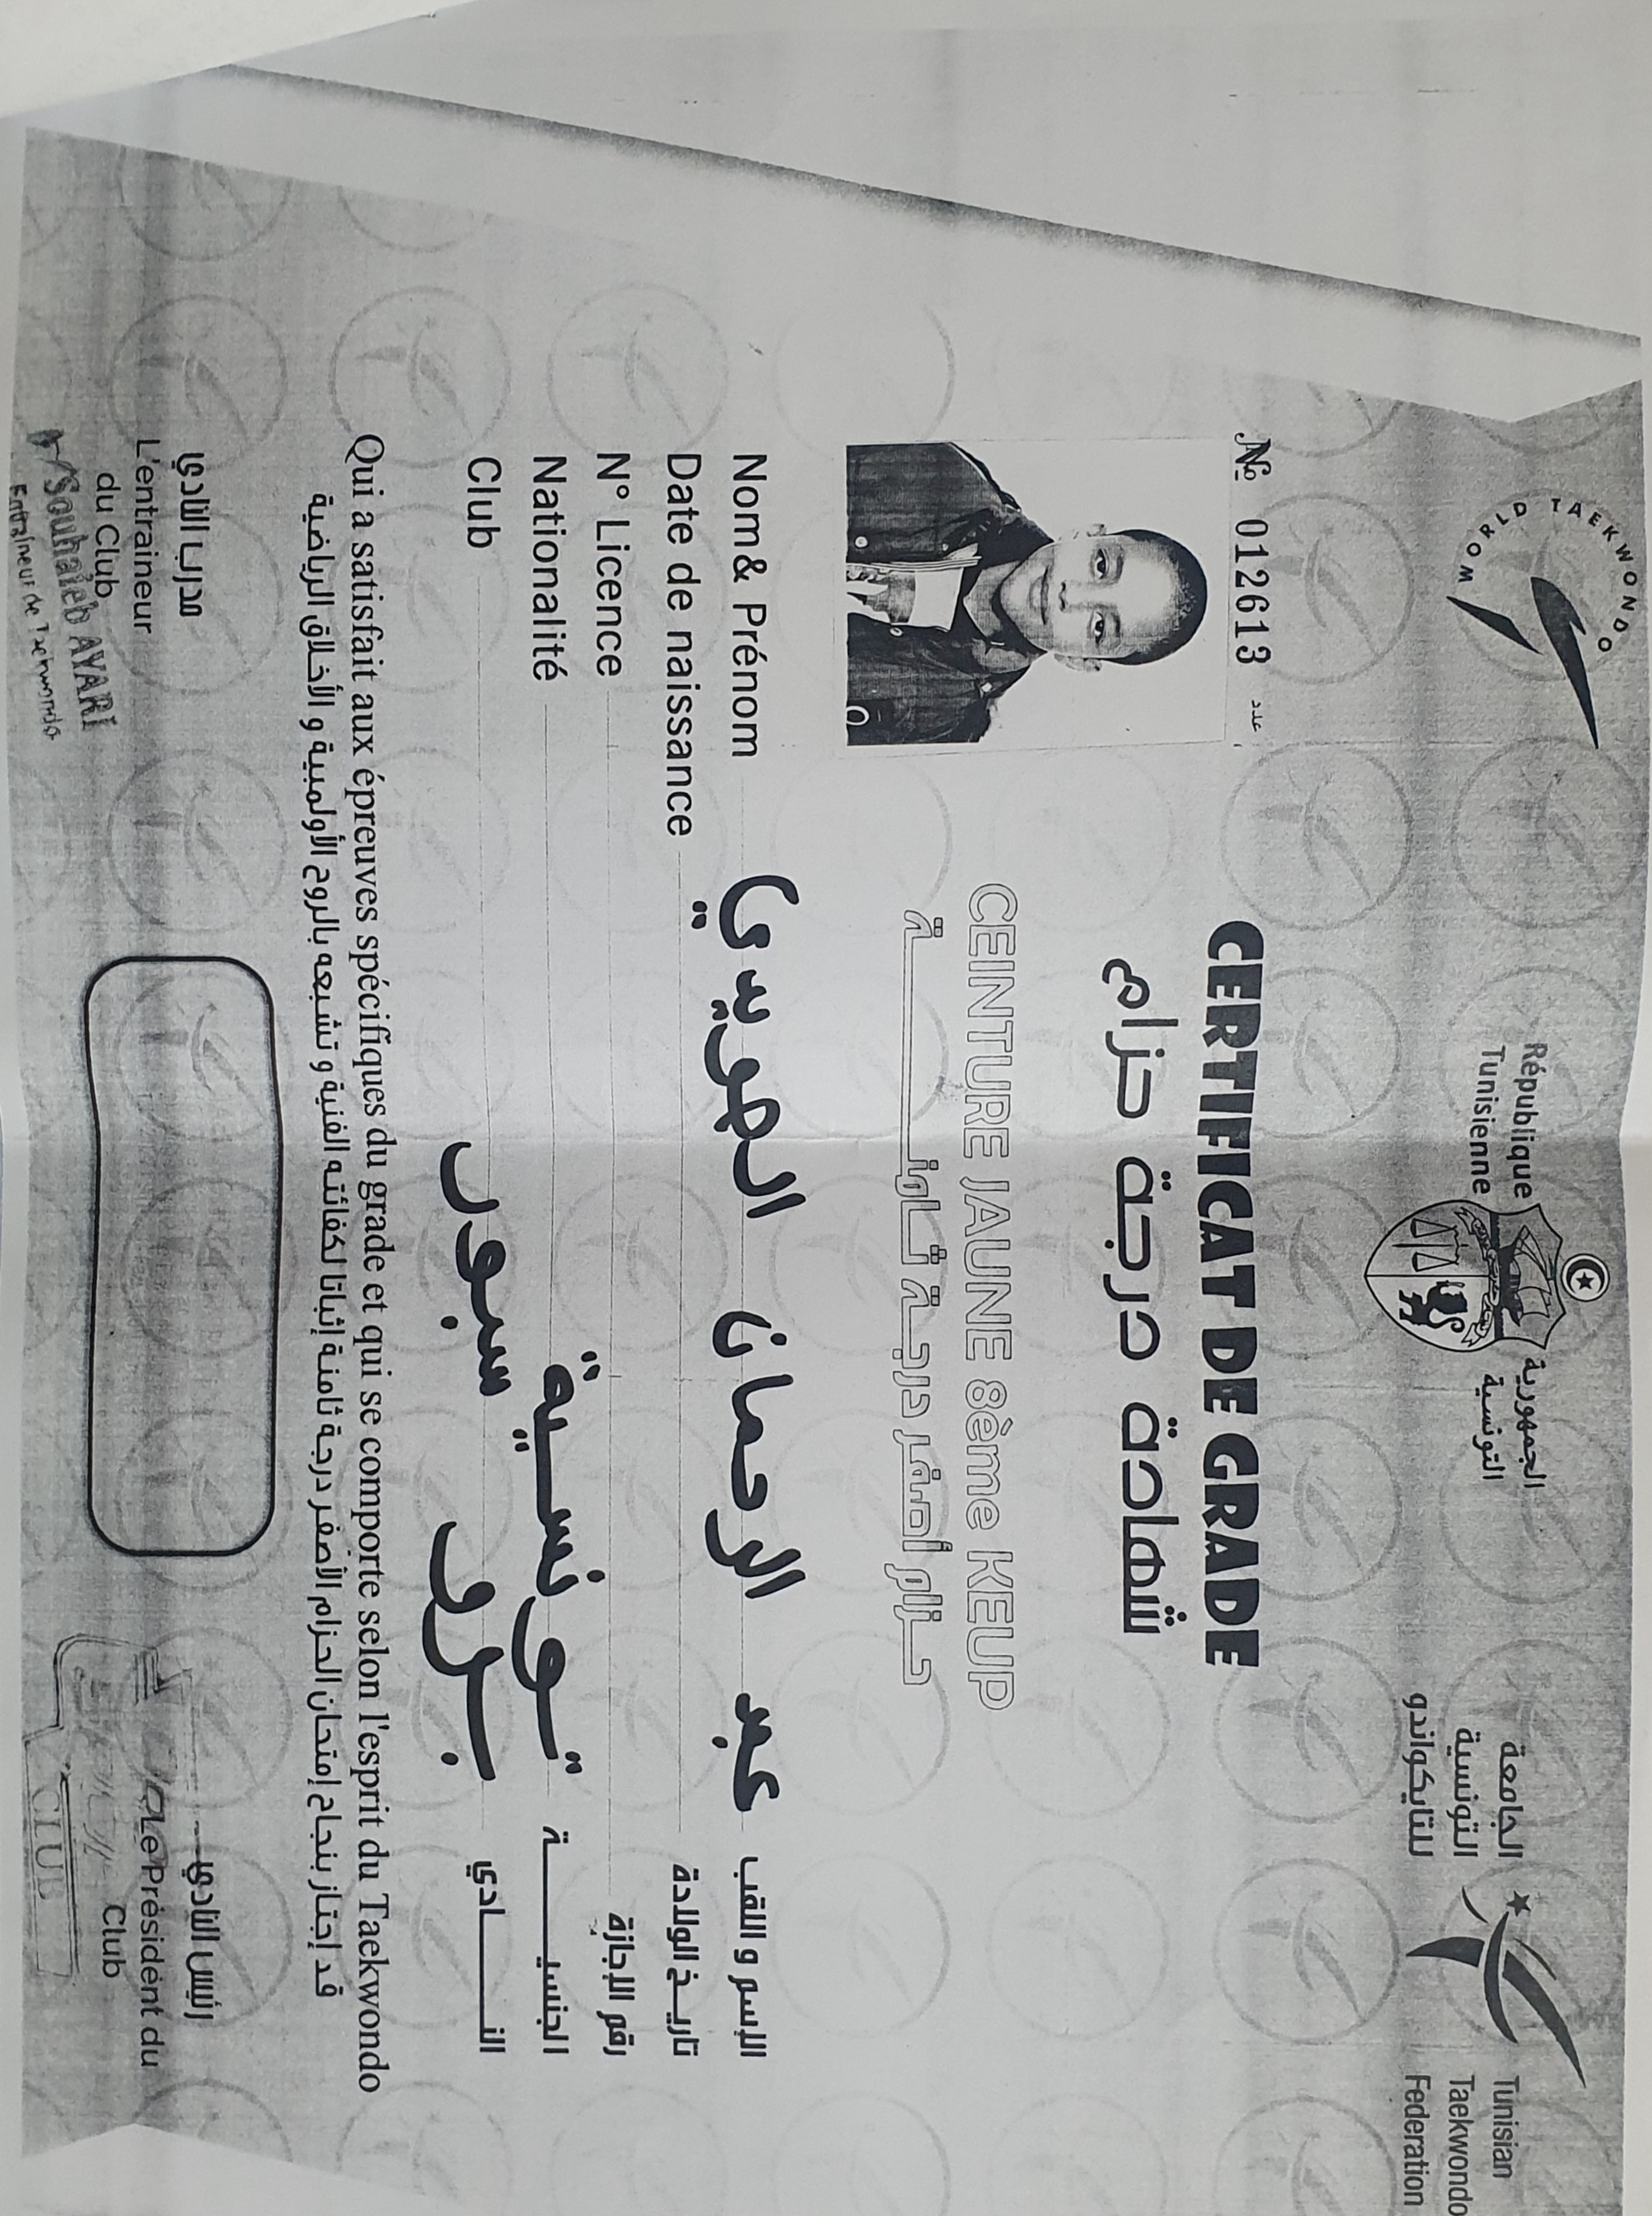 WORLD TAEKWONDO
République
Tunisienne
الجمهورية
التونسية
الجامعة
التونسية
للتايكواندو
Tunisian
Taekwondo
Federation
№ 012613 عدد
CERTIFICAT DE GRADE
شهادة درجة حزام
CEINTURE JAUNE 8ème KEUP
حزام أصفر درجة ثامنة
Nom& Prénom عبد الرحمان الهويدي الإسم و اللقب
Date de naissance تاريخ الولادة
N° Licence رقم الإجازة
Nationalité تونسية الجنسية
Club سبور النادي
Qui a satisfait aux épreuves spécifiques du grade et qui se comporte selon l'esprit du Taekwondo
قد إجتاز بنجاح إمتحان الحزام الأصفر درجة ثامنة إثباتا لكفائته الفنية و تشبعه بالروح الأولمبية و الأخلاق الرياضية
مدرب النادي
رئيس النادي
L'entraineur
du Club
Souhaieb AYARI
Entraîneur de Taekwondo
Le Président du
Club
CLUB